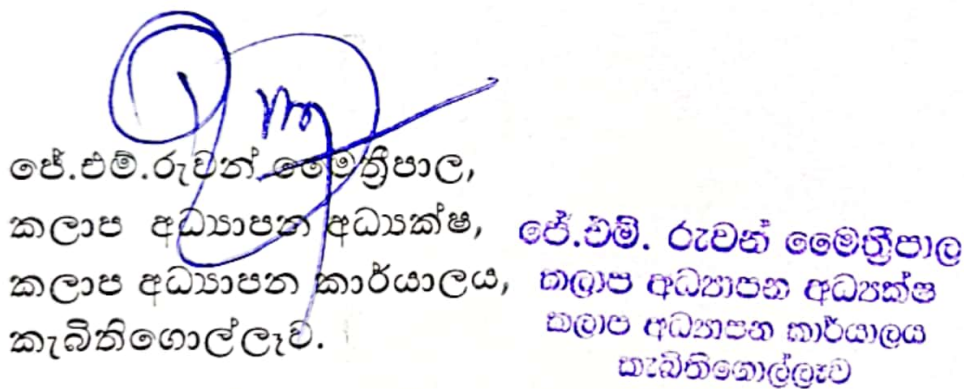 ජේ.එම්.රුවන් මෛත්‍රීපාල,
කලාප අධ්‍යාපන අධ්‍යක්ෂ,
කලාප අධ්‍යාපන කාර්යාලය,
කැබිතිගොල්ලෑව.
ජේ.එම්. රුවන් මෛත්‍රීපාල
කලාප අධ්‍යාපන අධ්‍යක්ෂ
කලාප අධ්‍යාපන කාර්යාලය
කැබිතිගොල්ලෑව